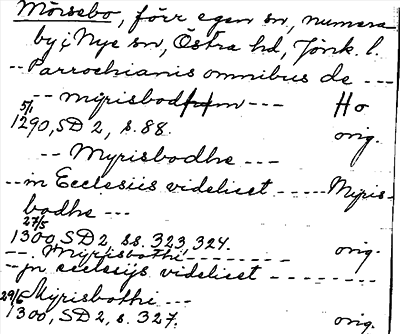 Mörsebo, förr egen sn, numera
by i Nye sn, Östra hd, Jönk. l.
-- Parrochianis omnibus de ---
-- myrisbodhum --- Ho
5/1
1290, SD 2, s. 88. orig.
-- Myrisbodhe ---
-- in Ecclesiis videlicet ---- Myris-
bodhe ---
27/5
1300, SD 2, ss. 323, 324. orig.
--. Myrisbothi --------
-- jn ecclesijs videlicet --------
29/6 Myrisbothi ---
1300, SD 2, s. 327. orig.